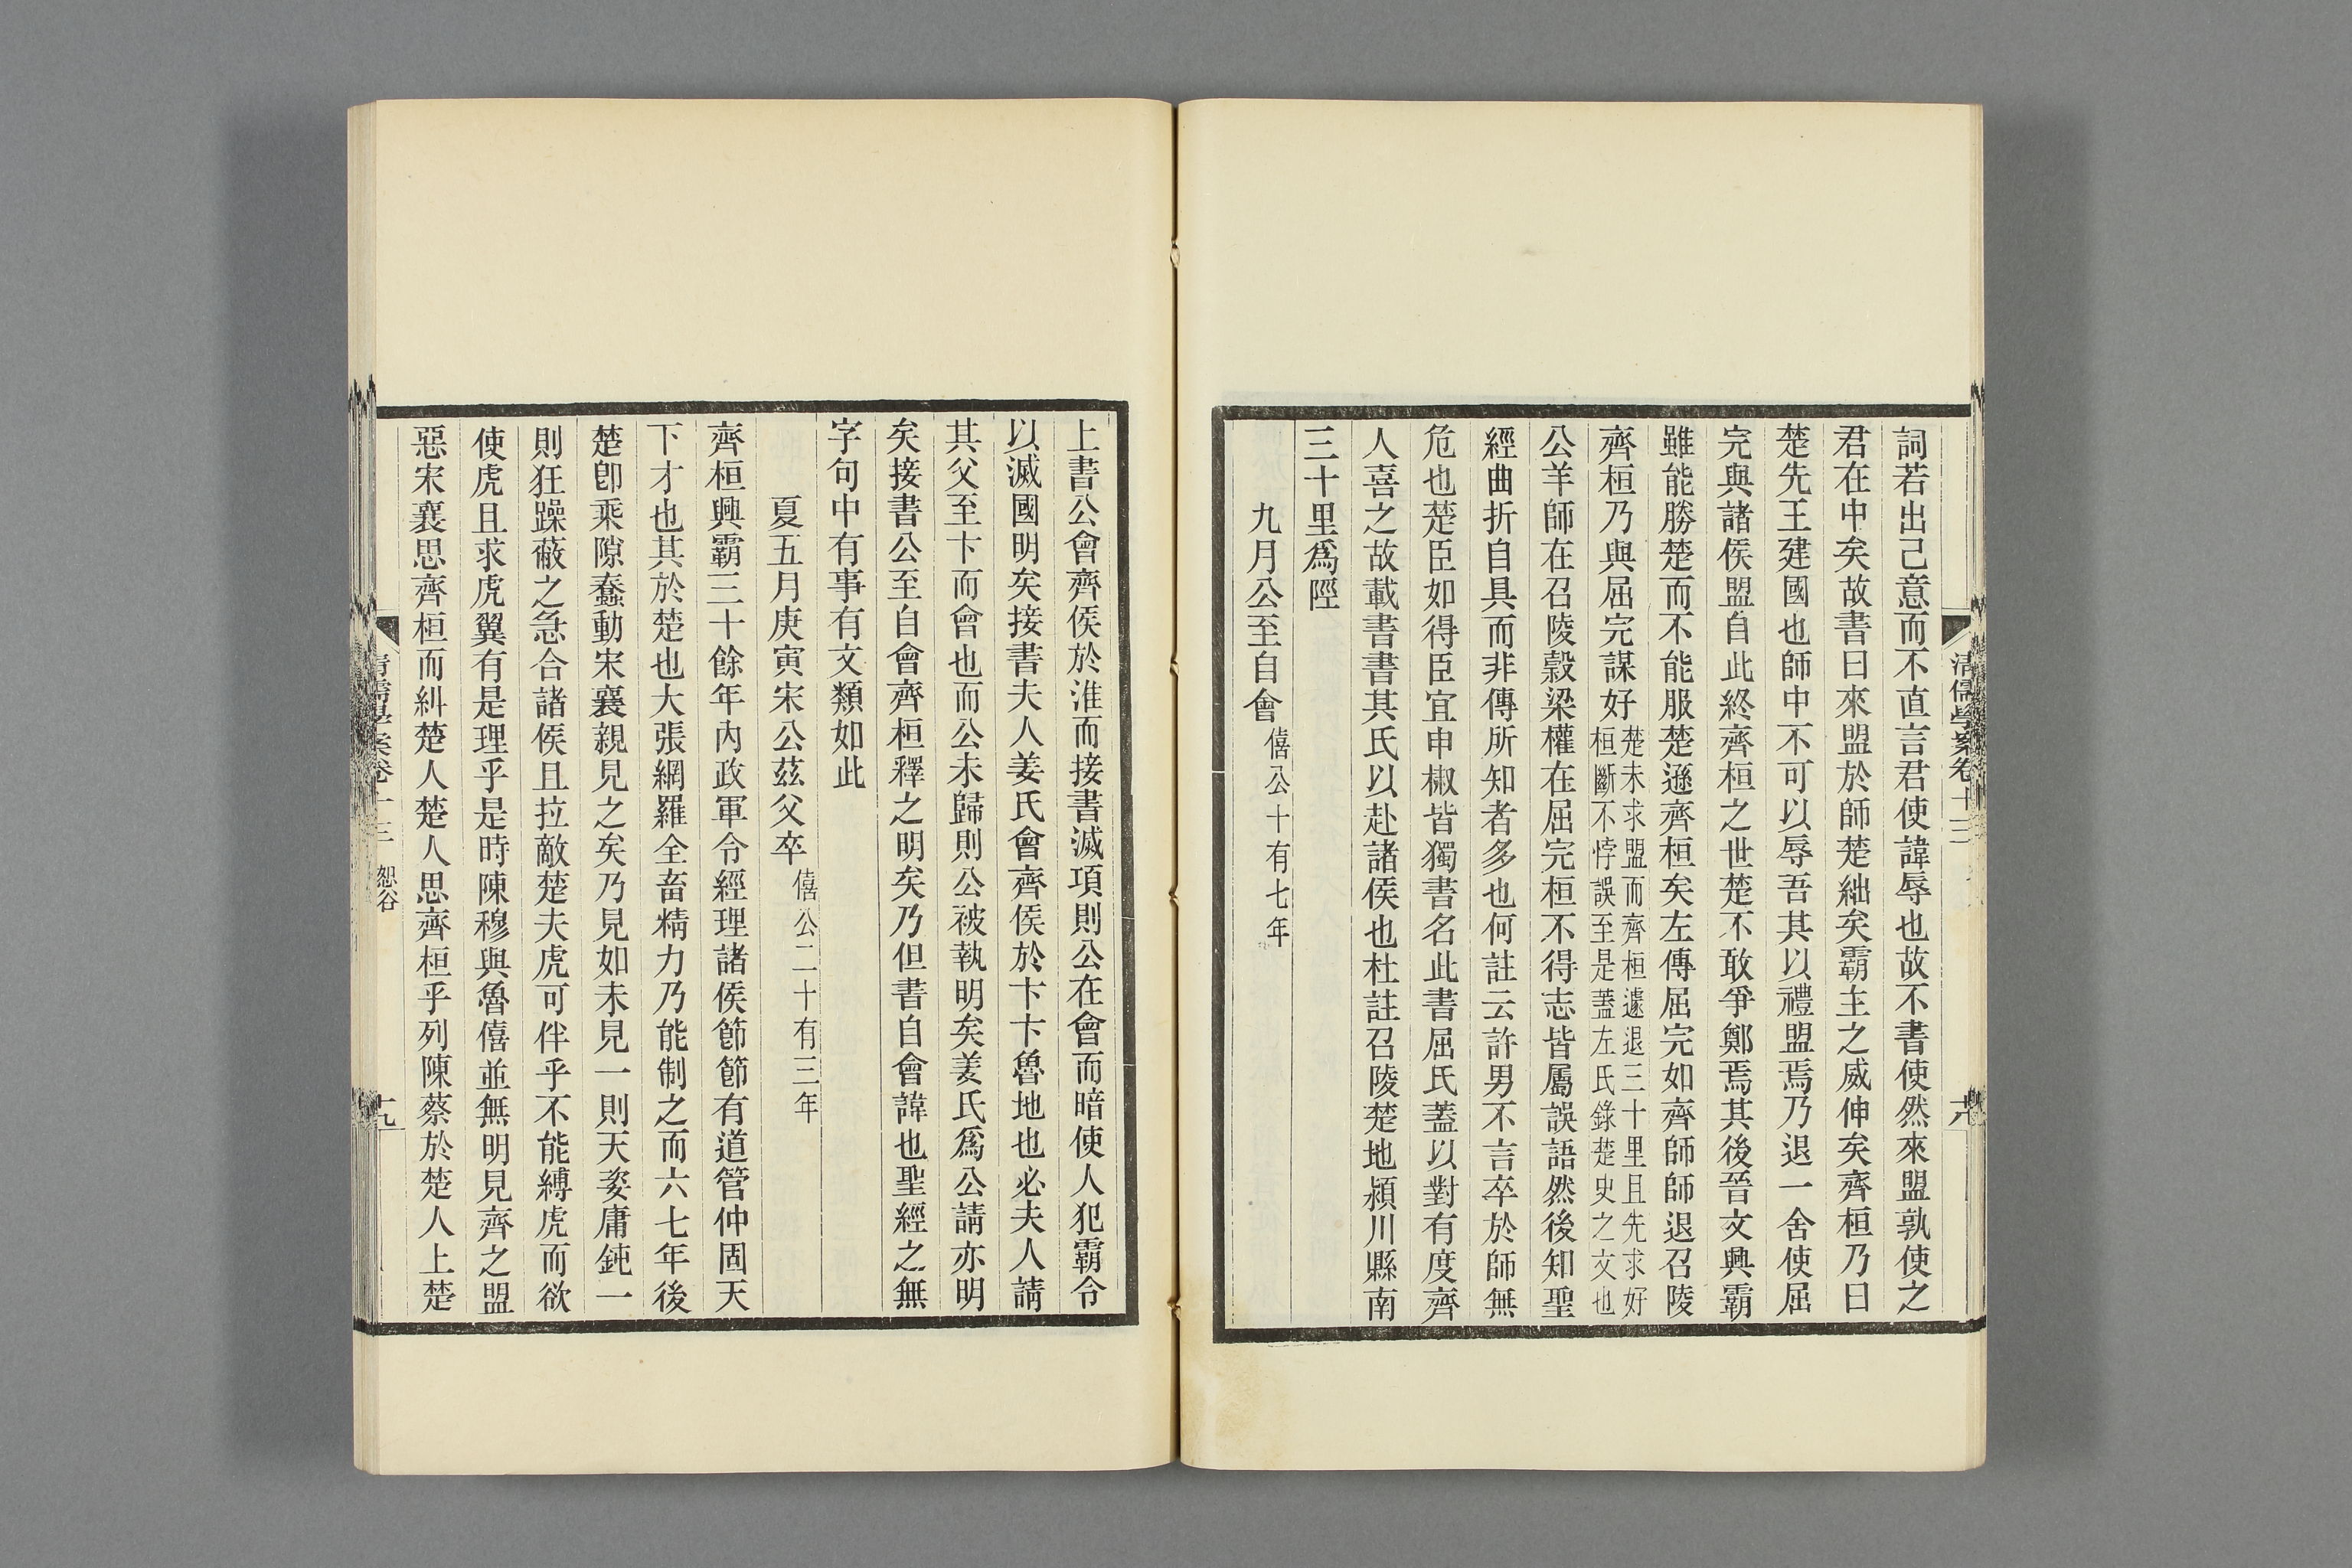 詞若出己意而不直言君使諱辱也故不書使然來盟孰使之
君在中矣故書曰來盟於師楚絀矣霸主之威伸矣齊桓乃曰
楚先王建國也師中不可以辱吾其以禮盟焉乃退一舍使屈
完與諸侯盟自此終齊桓之世楚不敢爭鄭焉其後晉文興霸
雖能勝楚而不能服楚遜齊桓矣左傳屈完如齊師師退召陵
齊桓乃與屈完謀好楚未求盟而齊桓遽退三十里且先求好
桓斷不悖誤至是蓋左氏錄楚史之文也
公羊師在召陵穀梁權在屈完桓不得志皆屬誤語然後知聖
經曲折自具而非傳所知者多也何註云許男不言卒於師無
危也楚臣如得臣宜申椒皆獨書名此書屈氏蓋以對有度齊
人喜之故載書書其氏以赴諸侯也杜註召陵楚地潁川縣南
三十里為陘
九月公至自會僖公十有七年
清儒學案卷十三
十八
上書公會齊侯於淮而接書滅項則公在會而暗使人犯霸令
以滅國明矣接書夫人姜氏會齊侯於卞卞魯地也必夫人請
其父至卞而會也而公未歸則公被執明矣姜氏為公請亦明
矣接書公至自會齊桓釋之明矣乃但書自會諱也聖經之無
字句中有事有文類如此
夏五月庚寅宋公茲父卒僖公二十有三年
齊桓興霸三十餘年內政軍令經理諸侯節節有道管仲固天
下才也其於楚也大張網羅全畜精力乃能制之而六七年後
楚卽乘隙蠢動宋襄親見之矣乃見如未見一則天姿庸鈍一
則狂躁蔽之急合諸侯且拉敵楚夫虎可伴乎不能縛虎而欲
使虎且求虎翼有是理乎是時陳穆與魯僖並無明見齊之盟
惡宋襄思齊桓而糾楚人楚人思齊桓乎列陳蔡於楚人上楚
清儒學案卷十三 恕谷
十九